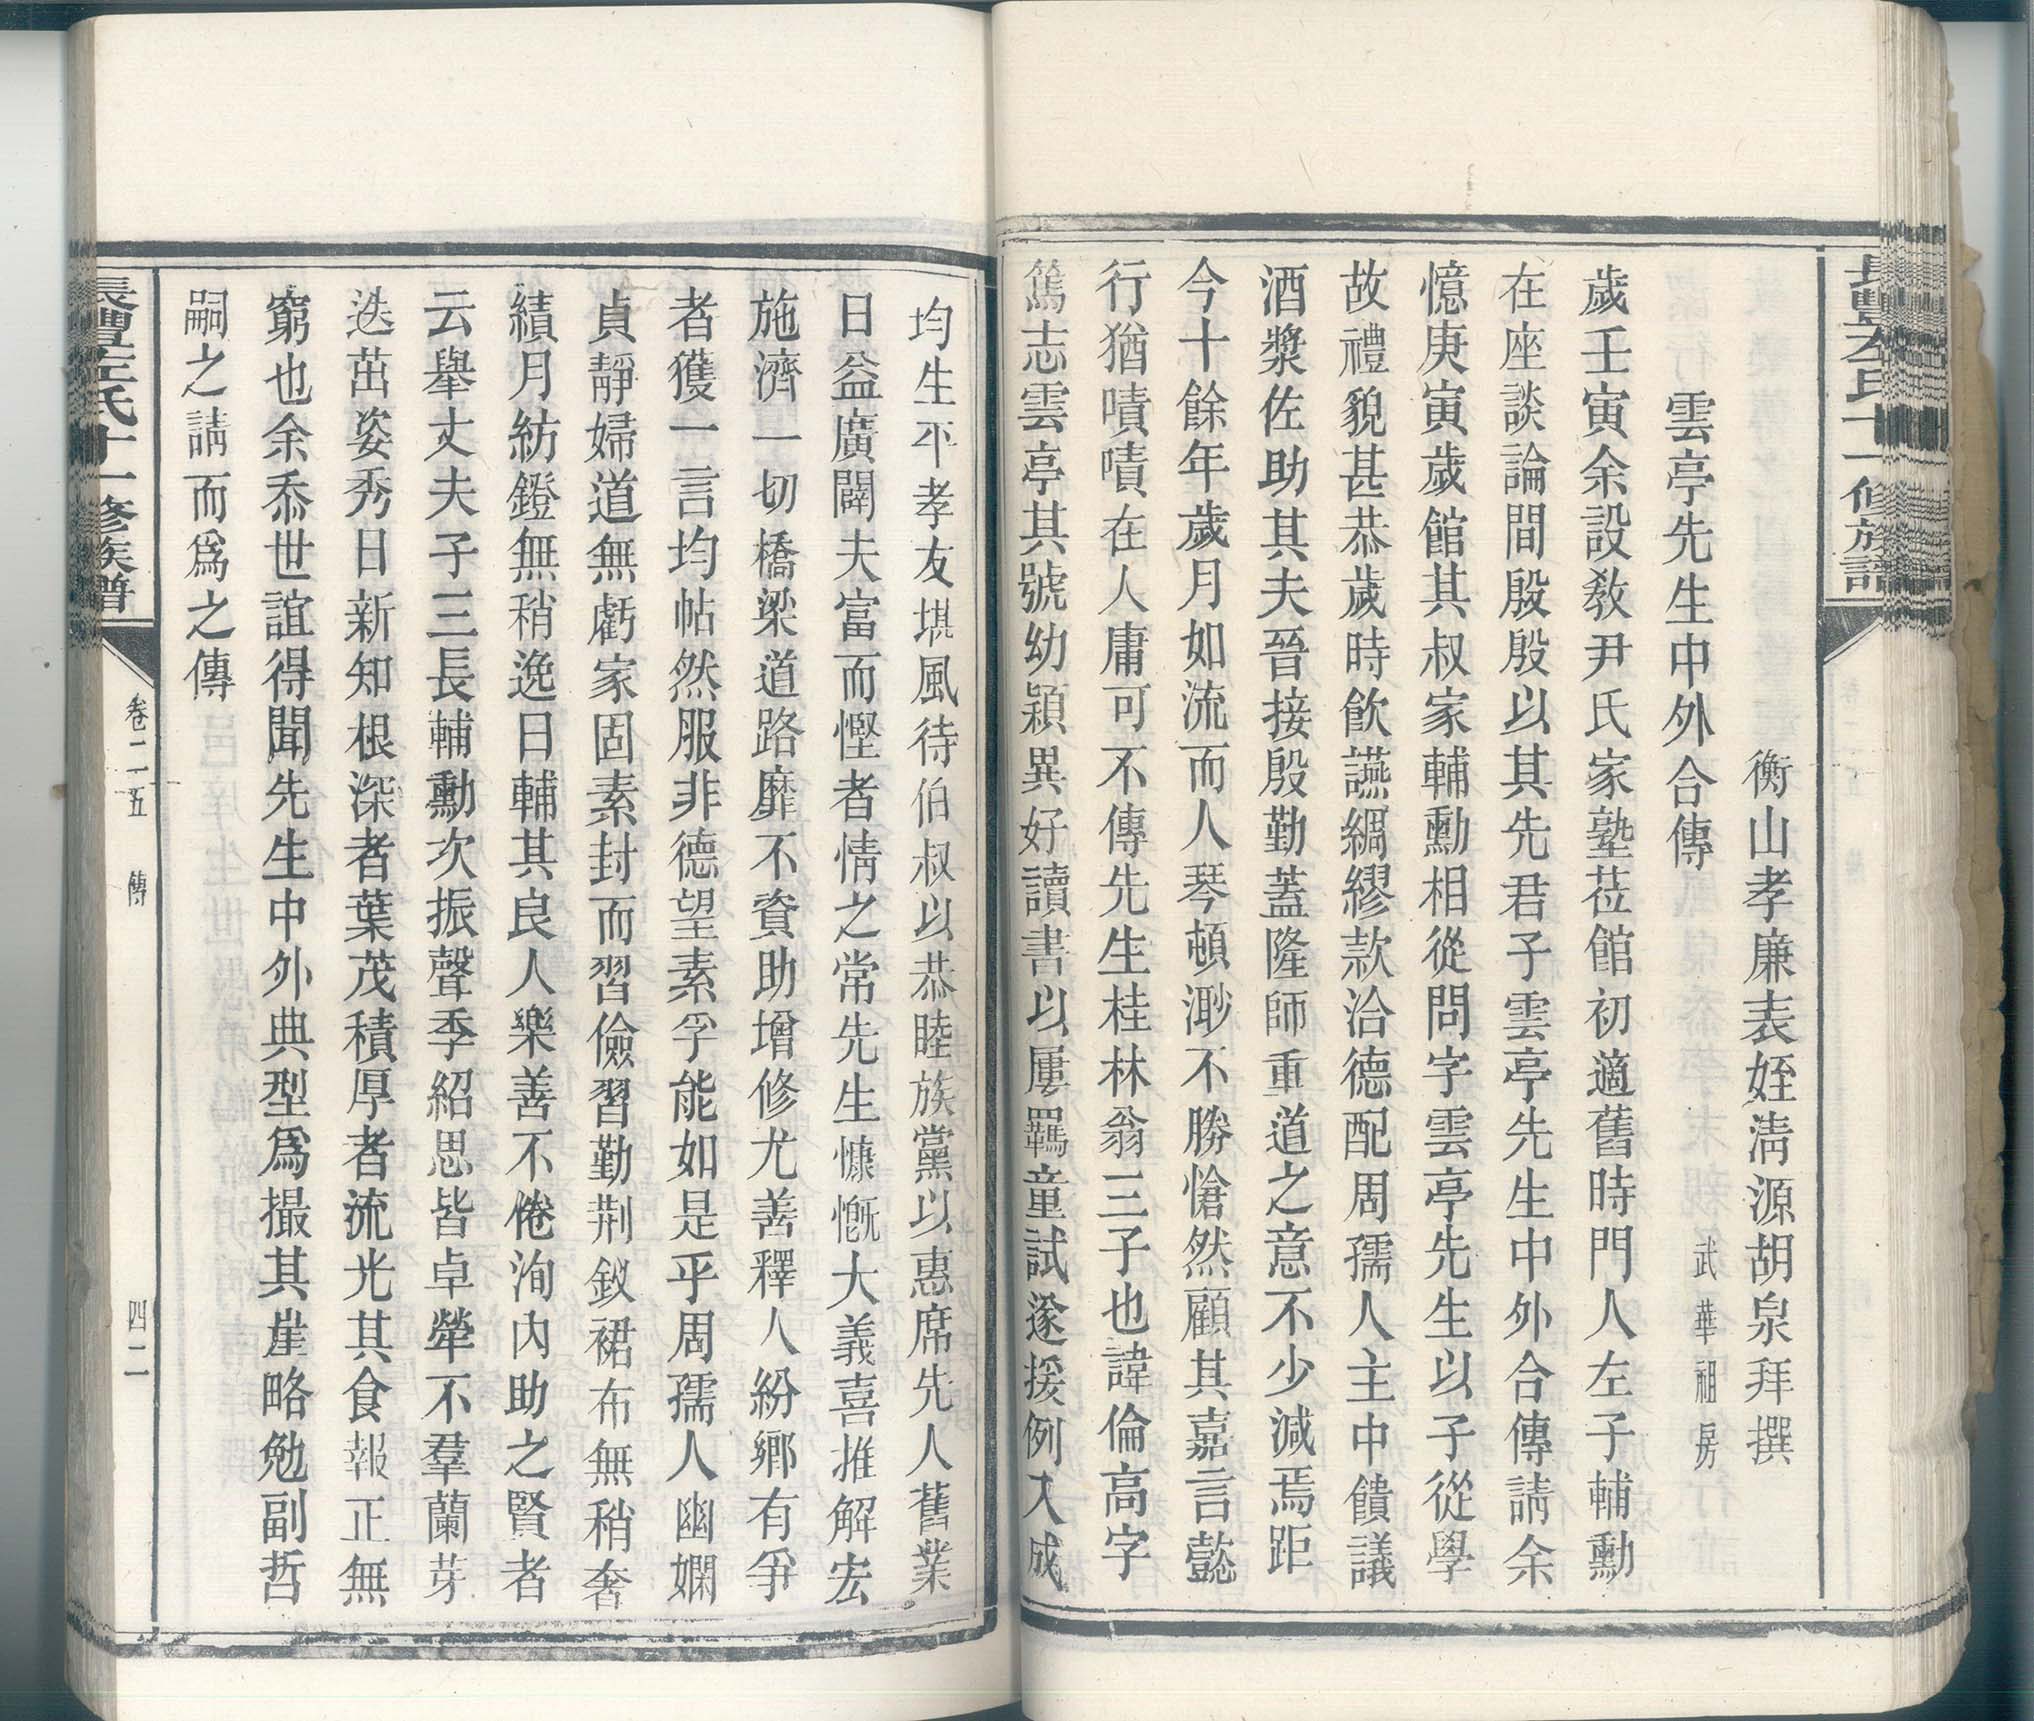 長豐左氏十一修族譜
衡山孝廉表姪淸源胡泉拜撰
雲亭先生中外合傳
武華祖房
歲壬寅余設敎尹氏家塾莅館初適舊時門人左子輔勳
在座談論間殷殷以其先君子雲亭先生中外合傳請余
憶庚寅歲館其叔家輔勳相從問字雲亭先生以子從學
故禮貌甚恭歲時飮讌綢繆款洽德配周孺人主中饋議
酒漿佐助其夫晉接殷勤蓋隆師重道之意不少減焉距
今十餘年歲月如流而人琴頓渺不勝愴然顧其嘉言懿
行猶嘖嘖在人庸可不傳先生桂林翁三子也諱倫高字
篤志雲亭其號幼穎異好讀書以屢羈童試遂援例入成
均生平孝友堪風待伯叔以恭睦族黨以惠席先人舊業
日益廣闢夫富而慳者情之常先生慷慨大義喜推解宏
施濟一切橋梁道路靡不資助增修尤善釋人紛鄕有爭
者獲一言均帖然服非德望素孚能如是乎周孺人幽嫻
貞靜婦道無虧家固素封而習儉習勤荆釵裙布無稍奢
績月紡鐙無稍逸日輔其良人樂善不倦洵內助之賢者
云舉丈夫子三長輔勳次振聲季紹思皆卓犖不羣蘭芽
迭茁姿秀日新知根深者葉茂積厚者流光其食報正無
窮也余忝世誼得聞先生中外典型爲撮其崖略勉副哲
嗣之請而爲之傳
長豐左氏十一修族譜
卷二五　傳
四二